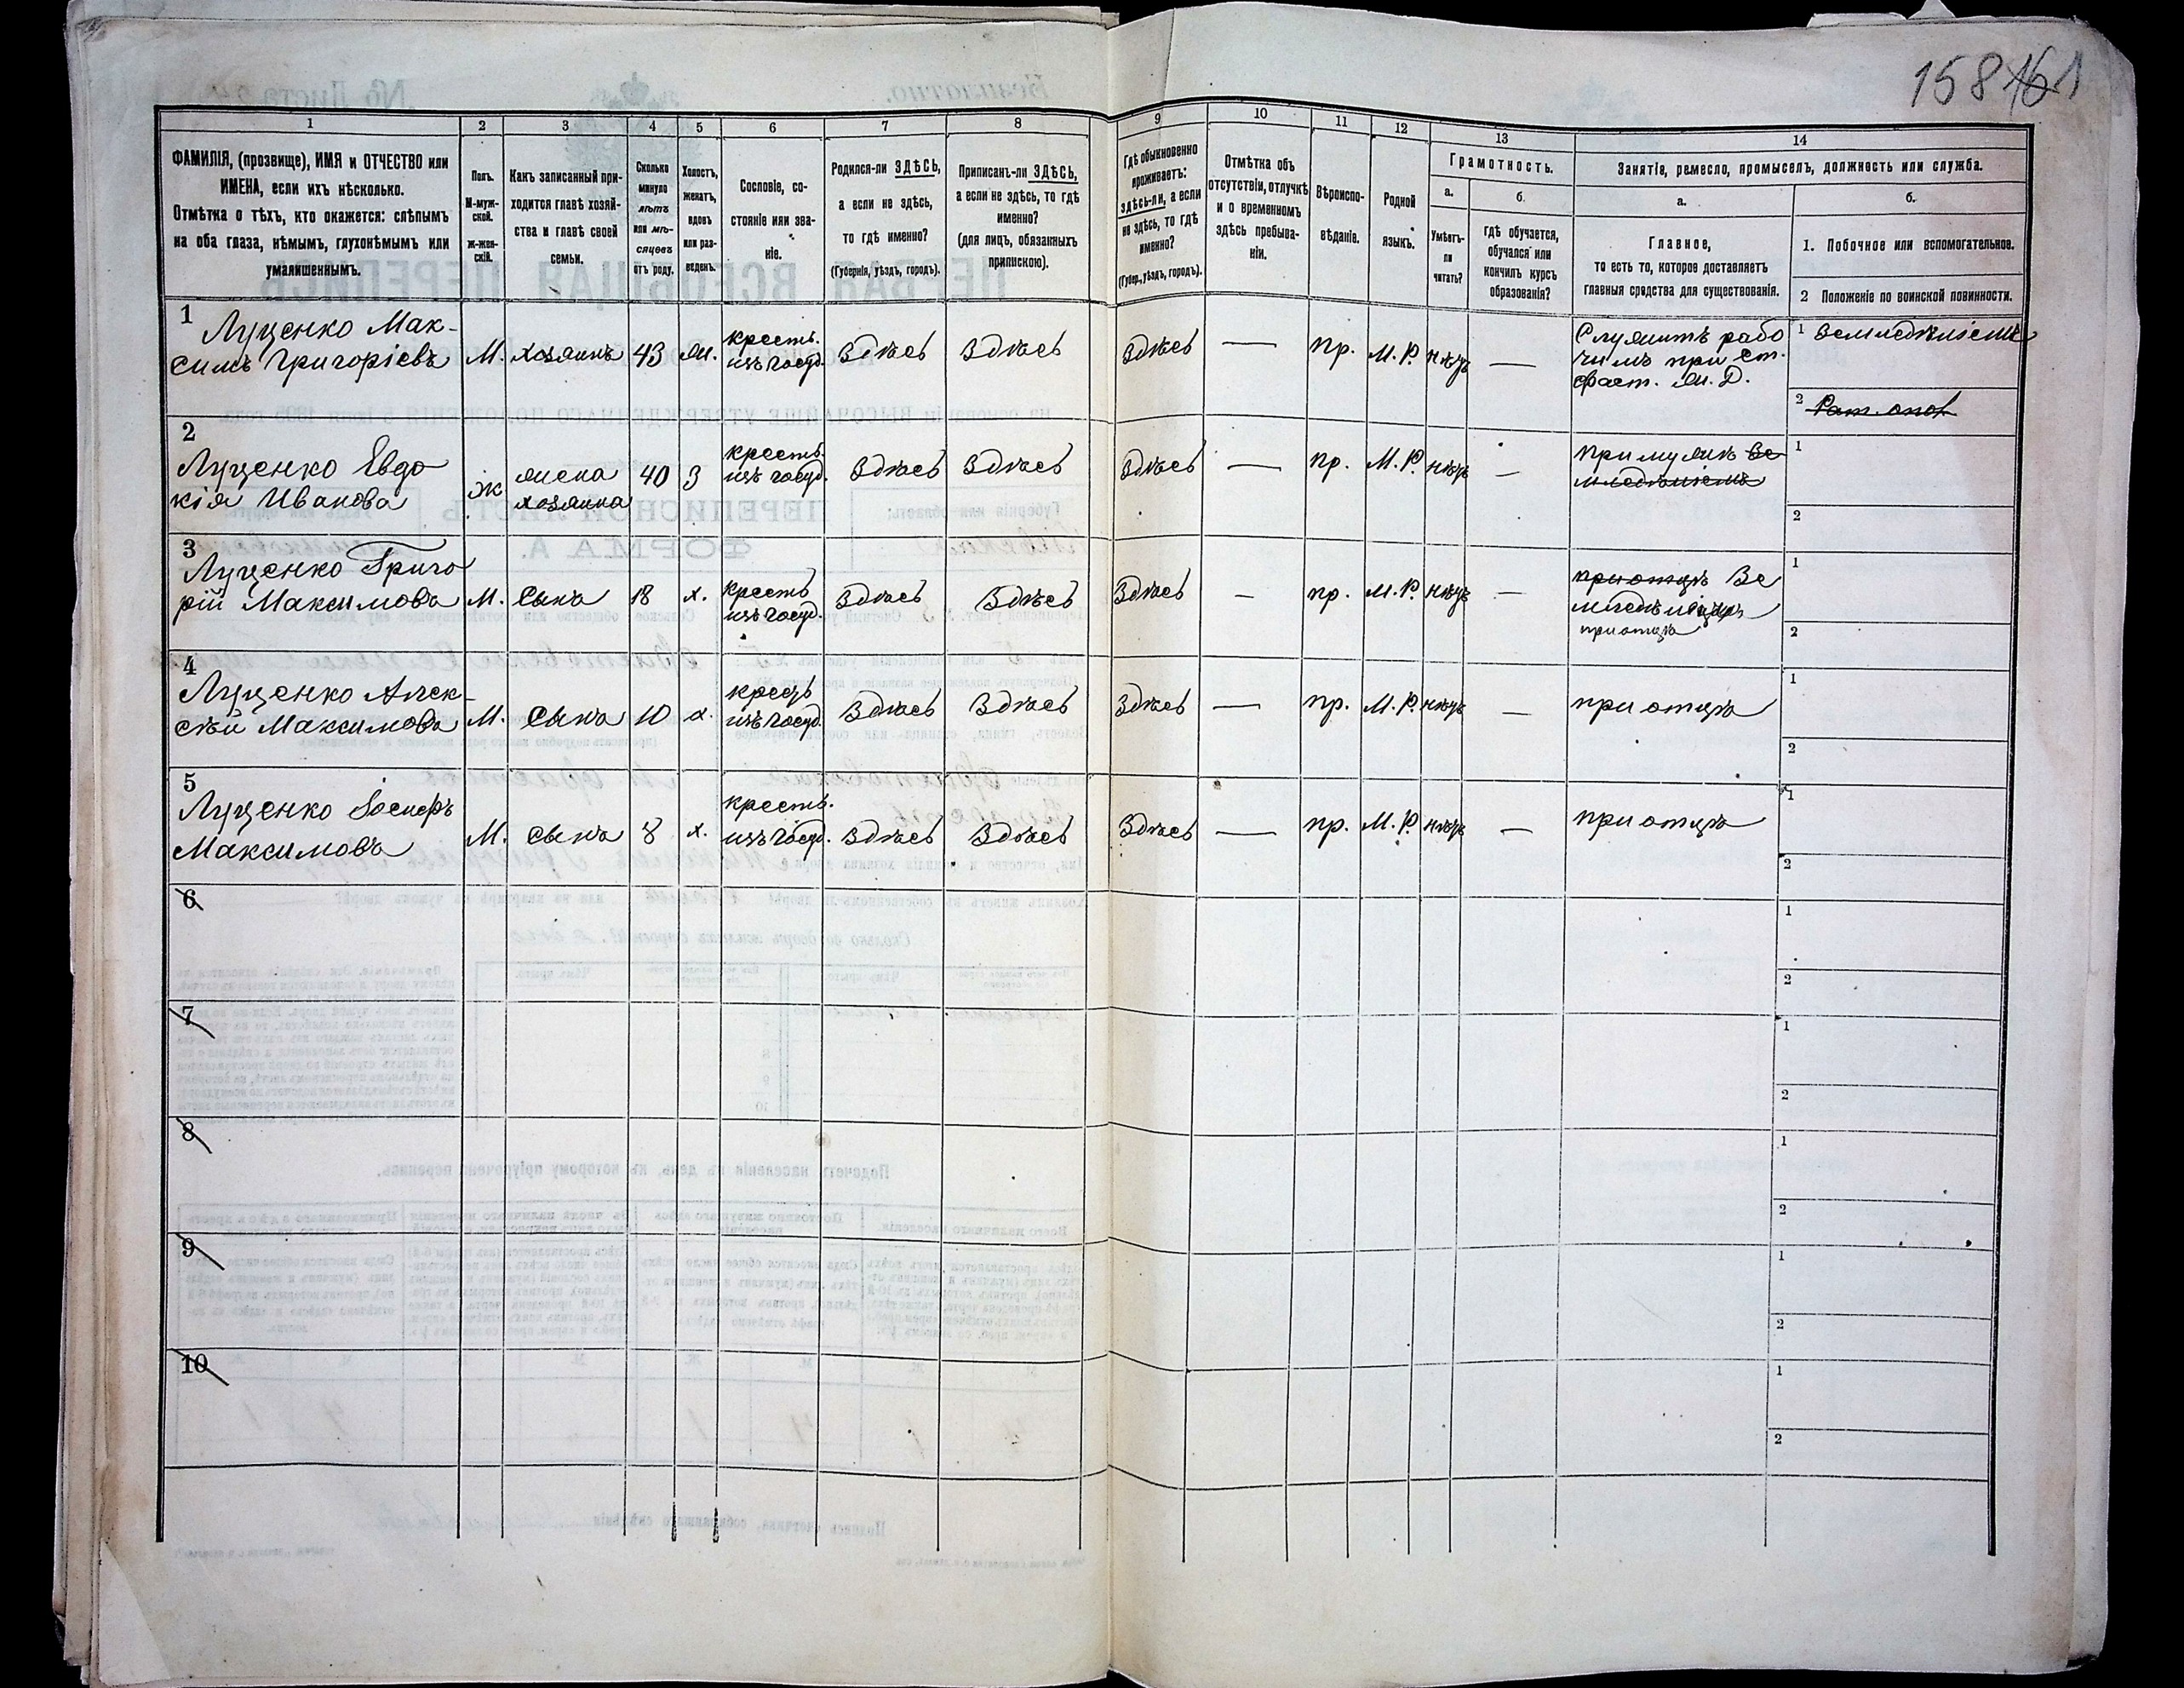 158 161
1 2 3 4 5 6 7 8 9 10 11 12 13 14
ФАМИЛІЯ, (прозвище), ИМЯ и ОТЧЕСТВО или
ИМЕНА, если ихъ нѣсколько.
Отмѣтка о тѣхъ, кто окажется: слѣпымъ
на оба глаза, нѣмымъ, глухонѣмымъ или
умалишеннымъ.
Полъ.
М-муж-
ской.
Ж-жен-
скій.
Какъ записанный при-
ходится главѣ хозяй-
ства и главѣ своей
семьи.
Сколько
минуло
лѣтъ
или мѣ-
сяцевъ
отъ роду.
Холостъ,
женатъ,
вдовъ
или раз-
веденъ.
Сословіе, со-
стояніе или зва-
ніе.
Родился-ли ЗДѢСЬ,
а если не здѣсь,
то гдѣ именно?
(Губернія, уѣздъ, городъ).
Приписанъ-ли ЗДѢСЬ,
а если не здѣсь, то гдѣ
именно?
(для лицъ, обязанныхъ
припискою).
Гдѣ обыкновенно
проживаетъ:
здѣсь-ли, а если
не здѣсь, то гдѣ
именно?
(Губер., уѣздъ, городъ).
Отмѣтка объ
отсутствіи, отлучкѣ
и о временномъ
здѣсь пребыва-
ніи.
Вѣроиспо-
вѣданіе.
Родной
языкъ.
Грамотность.
а.
Умѣетъ-
ли
читать?
б.
гдѣ обучается,
обучался или
кончилъ курсъ
образованія?
Занятія, ремесло, промыселъ, должность или служба.
а.
Главное,
то есть то, которое доставляетъ
главныя средства для существованія.
б.
1. Побочное или вспомогательное.
2 Положеніе по воинской повинности.
1
Луценко Мак-
симъ Григоріевъ
М.
хозяинъ
43
ж.
кресть.
изъ госуд.
Здѣсь
Здѣсь
Здѣсь
—
пр.
М. Р.
нѣтъ
—
Служитъ рабо
чимъ при ст.
Фаст. ж. Д.
1 земледѣліемъ
2 Рат. опол
2
Луценко Евдо
кія Иванова
ж
жена
хозяина
40
З
кресть.
изъ госуд.
Здѣсь
Здѣсь
Здѣсь
—
пр.
М. Р.
нѣтъ
—
при мужѣ Зе
мледѣліемъ
1
2
3
Луценко Григо
рій Максимовъ
М.
Сынъ
18
х.
кресть
изъ госуд.
Здѣсь
Здѣсь
Здѣсь
—
пр.
М. Р.
нѣтъ
—
при отцѣ Зе
при отцѣ
1
2
4
Луценко Алек-
сѣй Максимовъ
М.
Сынъ
10
х.
кресть
изъ госуд.
Здѣсь
Здѣсь
Здѣсь
—
пр.
М. Р.
нѣтъ
—
при отцѣ
1
2
5
Луценко Іосифъ
Максимовъ
М.
Сынъ
8
х.
кресть.
изъ госуд.
Здѣсь
Здѣсь
Здѣсь
—
пр.
М. Р.
нѣтъ
—
при отцѣ
1
2
6
1
2
7
1
2
8
1
2
9
1
2
10
1
2